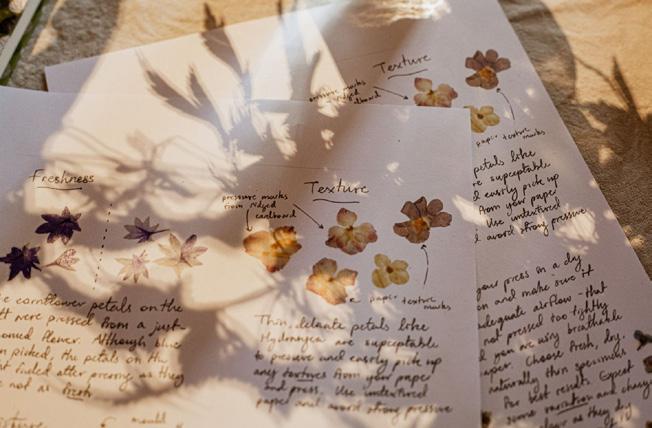 Freshness
e cornflower petals on the
ft were pressed from a just-
omed flower. Although blue
n picked, the petals on the
t faded after pressing as they
e not as fresh
mould
Texture
pressure marks
from ridged
cardboard
paper texture
marks
Thin, delicate petals like
Hydrangea are suseptable
to preserve and easily pick up
any textures from your paper
and press. Use untextured
paper and avoid strong pressure
Texture
pressure marks
cardboard
paper texture
marks
petals like
re suseptable
d easily pick up
from your paper
Use untextured
d avoid strong pressure
your press in a dry
on and make sure it
adequate airflow - that
not pressed too tightly
d you are using breathable
aper. Choose fresh, dry,
naturally thin specimens
For best results. Expect
some variation and
as they dry